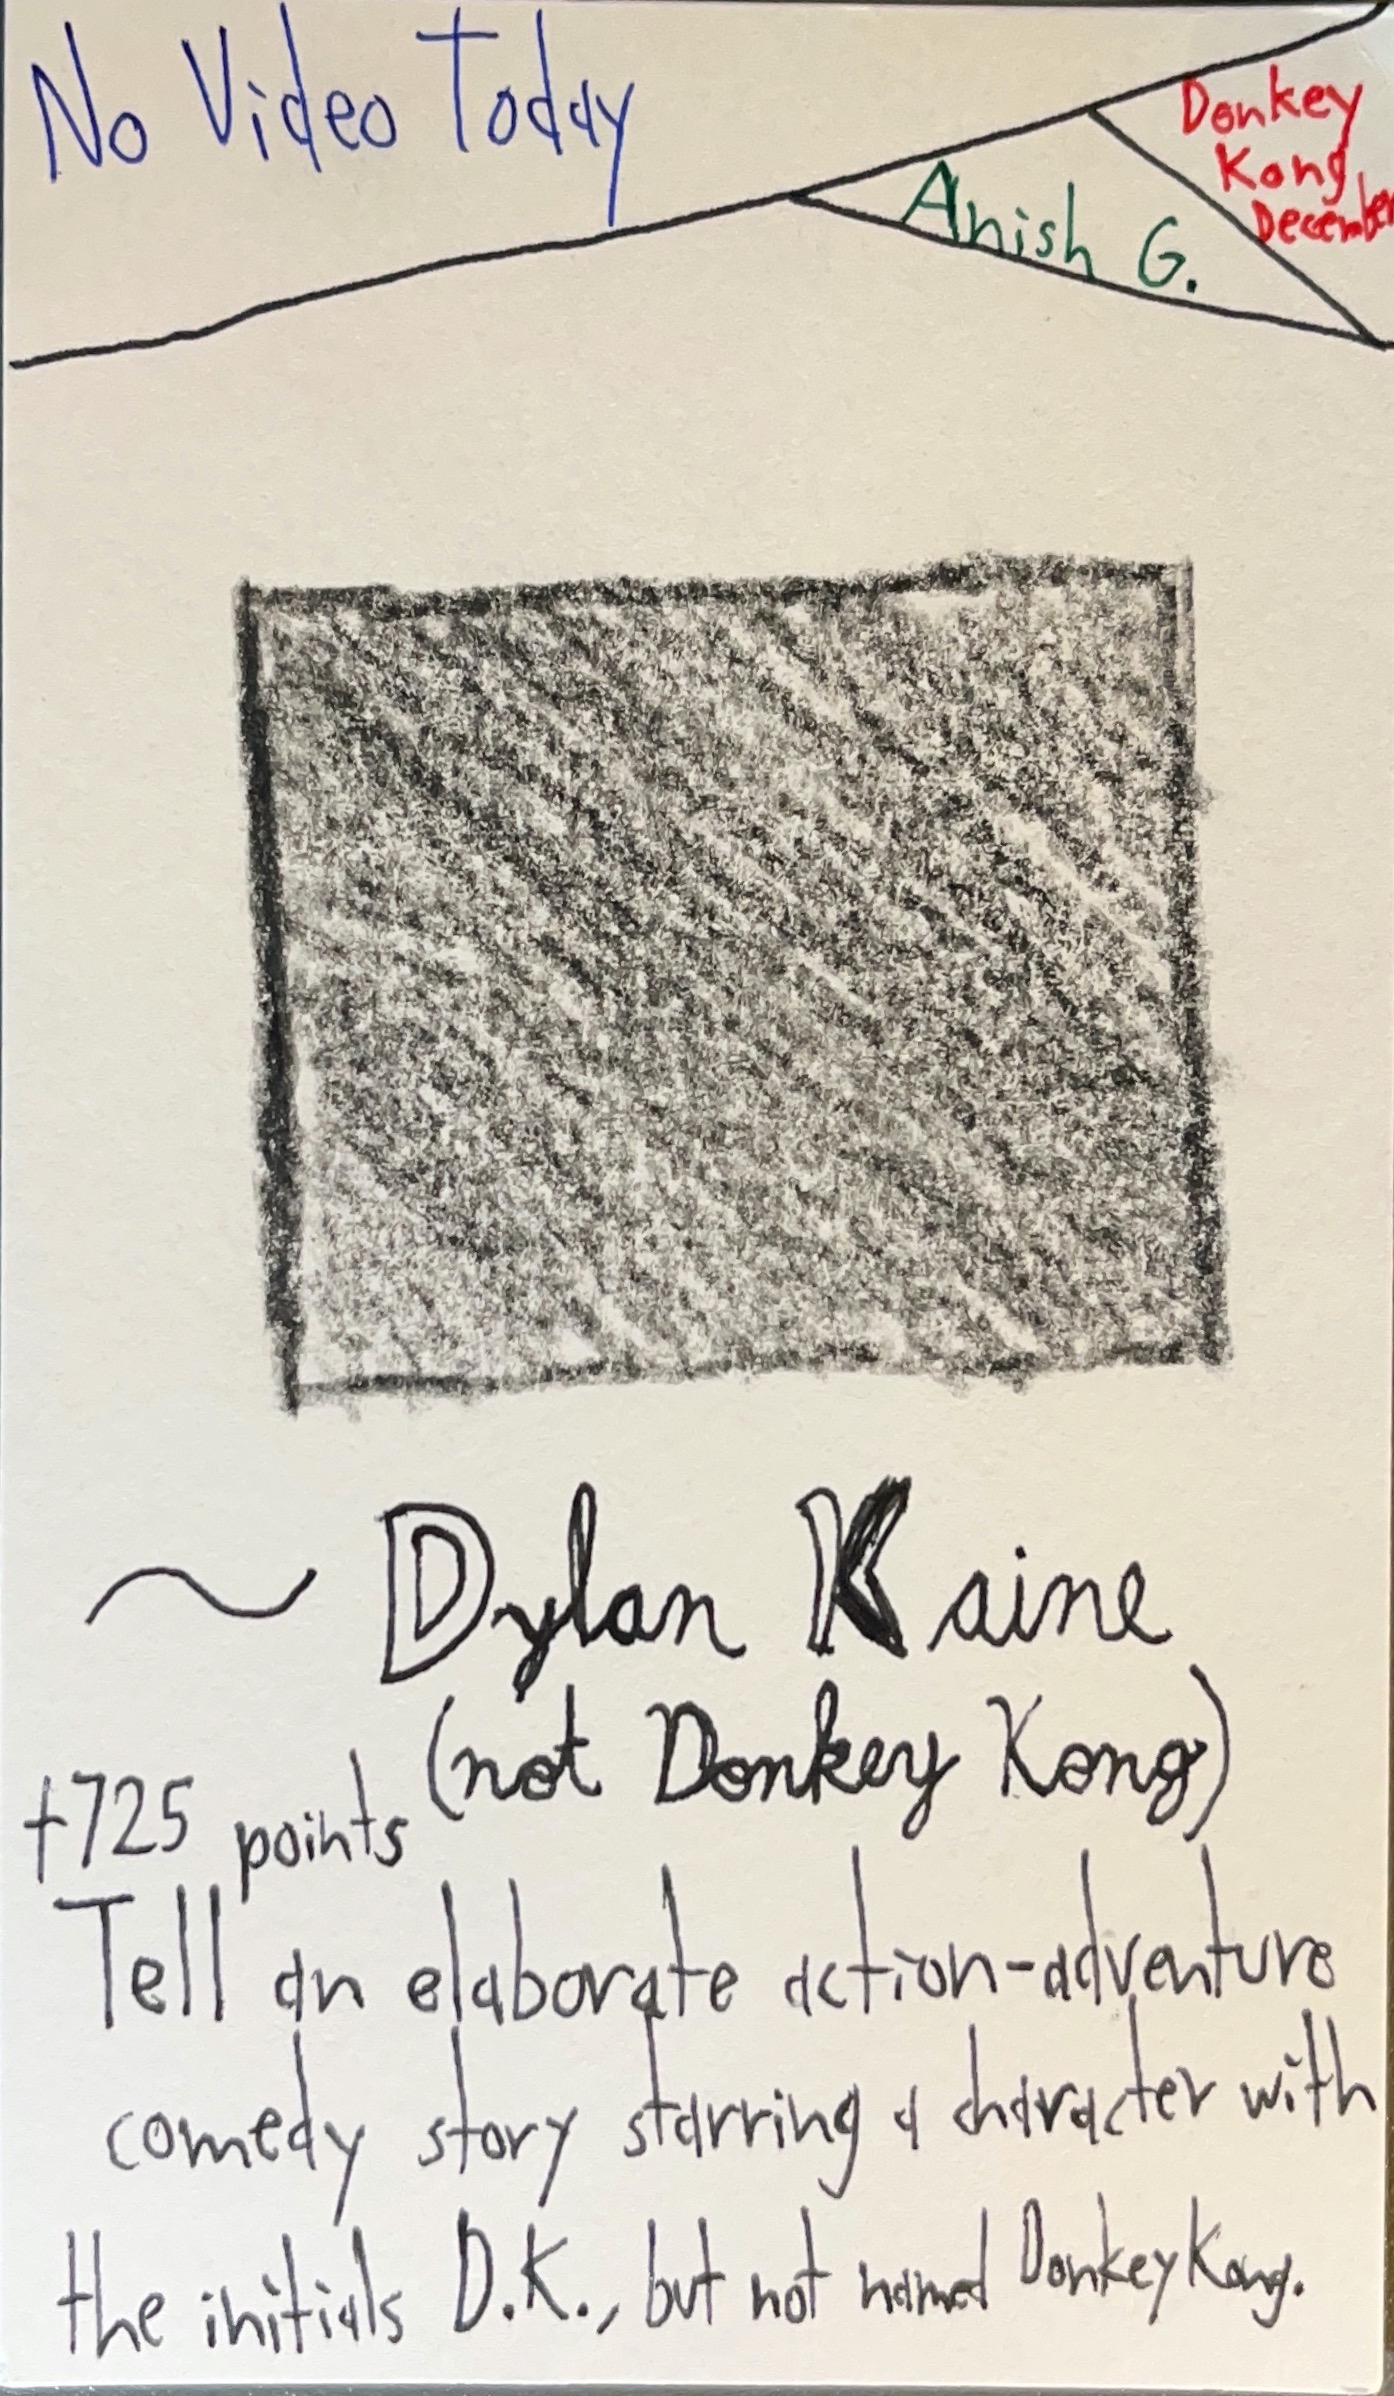 No Video Today
Anish G.
Donkey
Kong
December
~ Dylan Kaine
(not Donkey Kong)
+725 points
Tell an elaborate action-adventure
comedy story starring a character with
the initials D.K., but not named Donkey Kong.